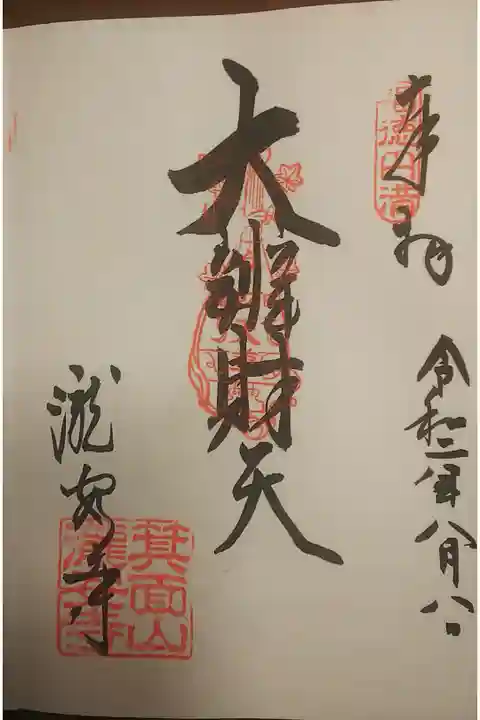 奉拝
福徳円満
令和三年八月八日
大辨財天
瀧安寺
箕面山
瀧安寺